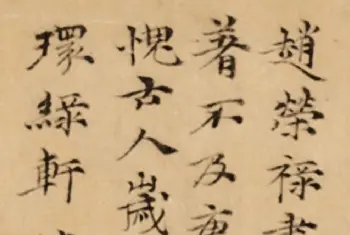 趙榮祿書
著不及唐
愧古人歲
環綠軒